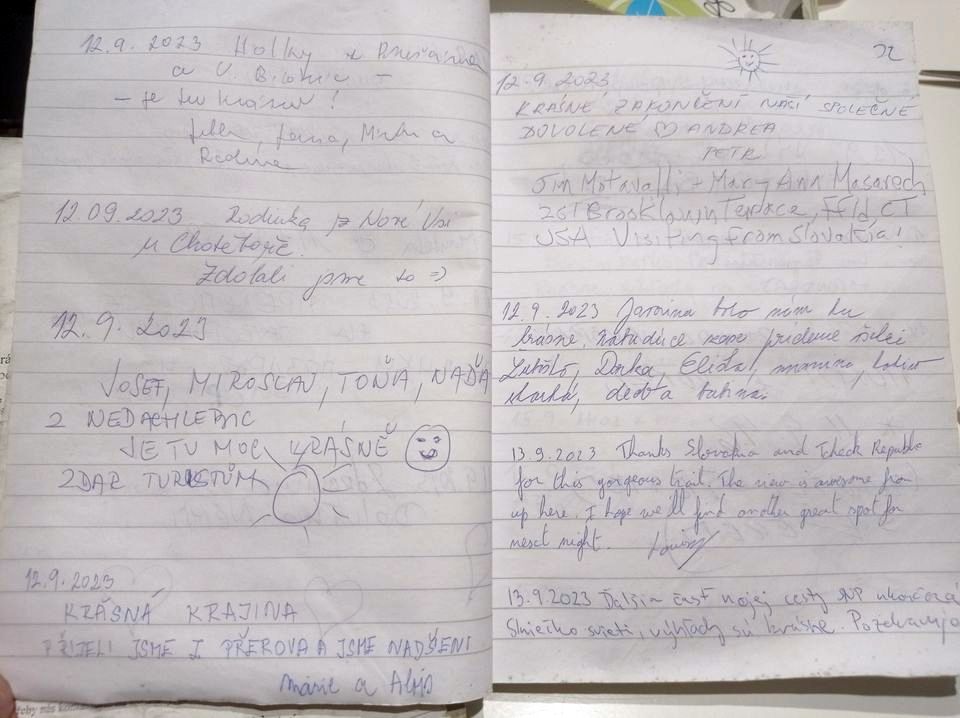 12.9.2023 Holky z
a V.
– je tu krásně!
Jana,
12.09.2023 Rodinka z Nové Vsi
u Chotěboře.
Zdolali jsme to =)
12.9.2023
JOSEF, MIROSLAV, TOŇA, NAĎA
Z NEDACHLEBIC
JE TU MOC KRÁSNĚ
ZDAR TURISTŮM
12.9.2023
KRÁSNÁ KRAJINA
PŘIJELI JSME Z PŘEROVA A JSME NADŠENI
Marie a
12.9.2023
KRÁSNÉ ZAKONČENÍ NAŠÍ SPOLEČNÉ
DOVOLENÉ ♡ ANDREA
PETR
Jim Motavalli + Mary Ann Masarech
261 Brooklawn Terrace, Ffld, CT
USA Visiting from Slovakia!
12.9.2023 bolo nám tu
krásne, nabudúce zase prídeme
Dorka, mamina,
dedo a babina.
13.9.2023 Thanks Slovakia and Tcheck Republic
for this gorgeous trail. The view is awesome from
up here. I hope we'll find another great spot for
next night.
13.9.2023 Ďalšia časť mojej cesty SNP ukončená
Slniečko svieti, výhľady sú krásne. Pozdravujem